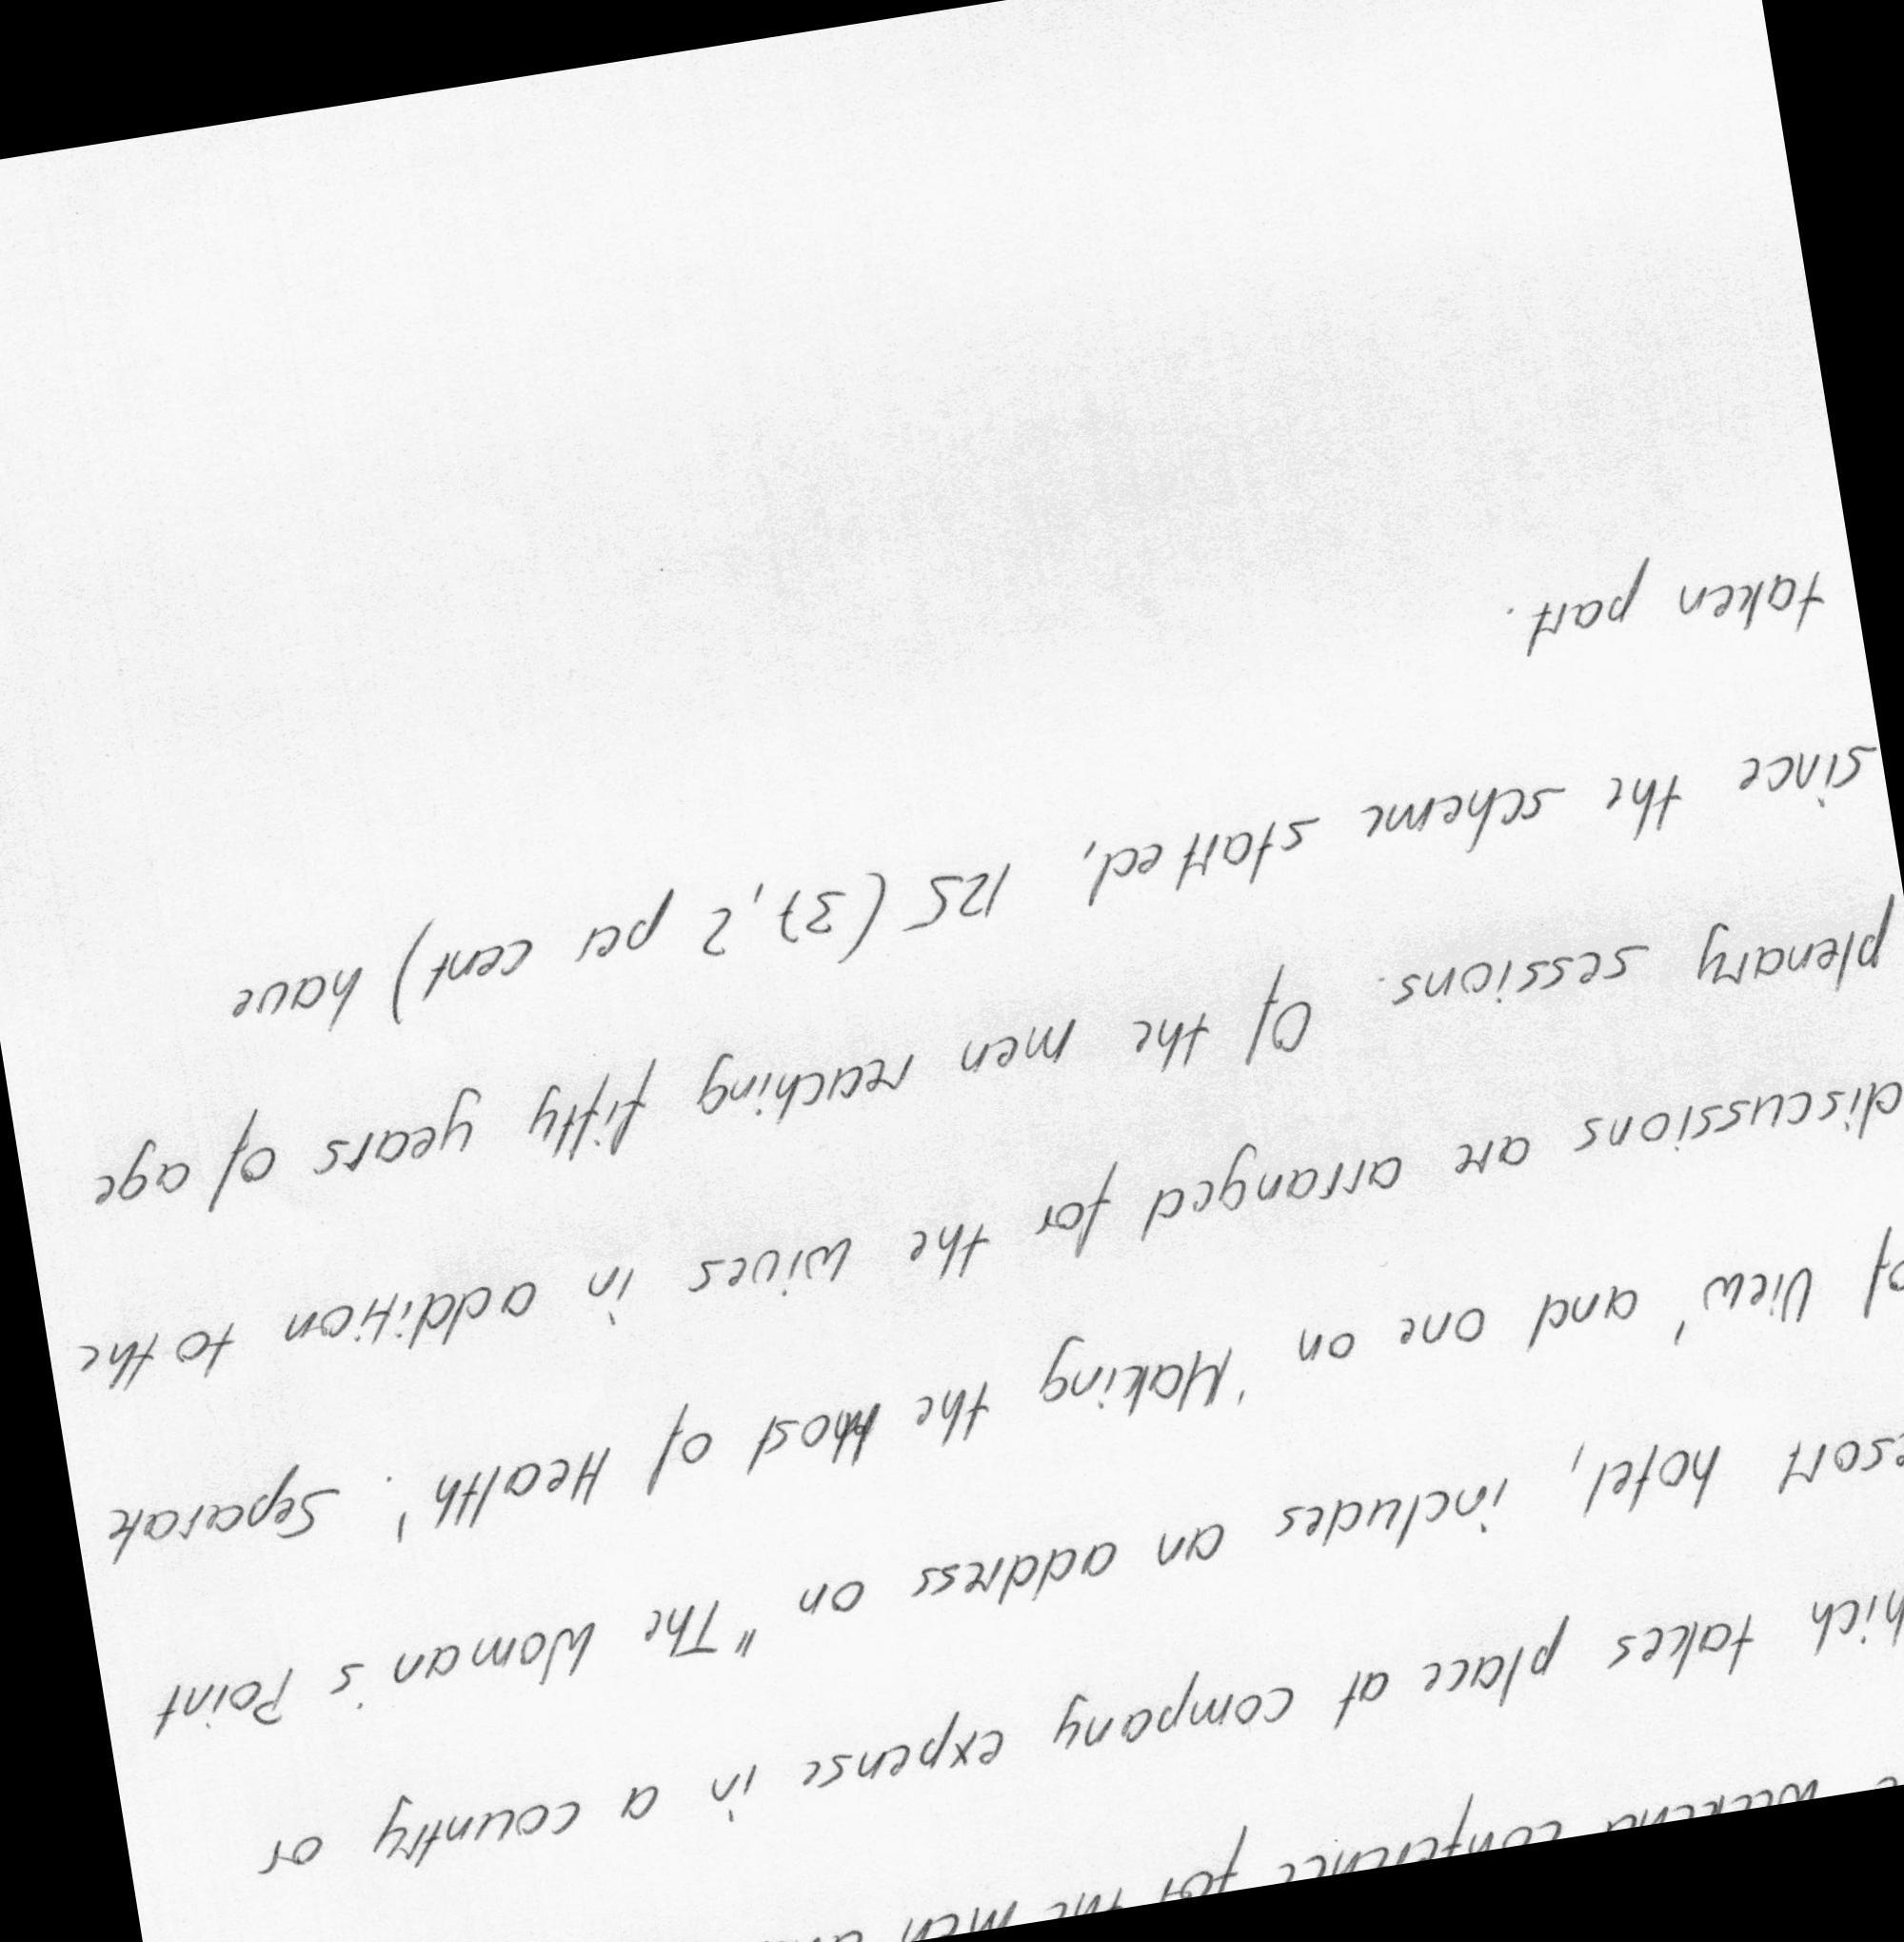 weekend conference for the men
which takes place at company expense in a country or
resort hotel, includes an address on "The Woman's Point
of View' and one on 'Making the Most of Health'. Separate
discussions are arranged for the wives in addition to the
plenary sessions. Of the men reaching fifty years of age
since the scheme started, 125 (37,2 per cent) have
taken part.